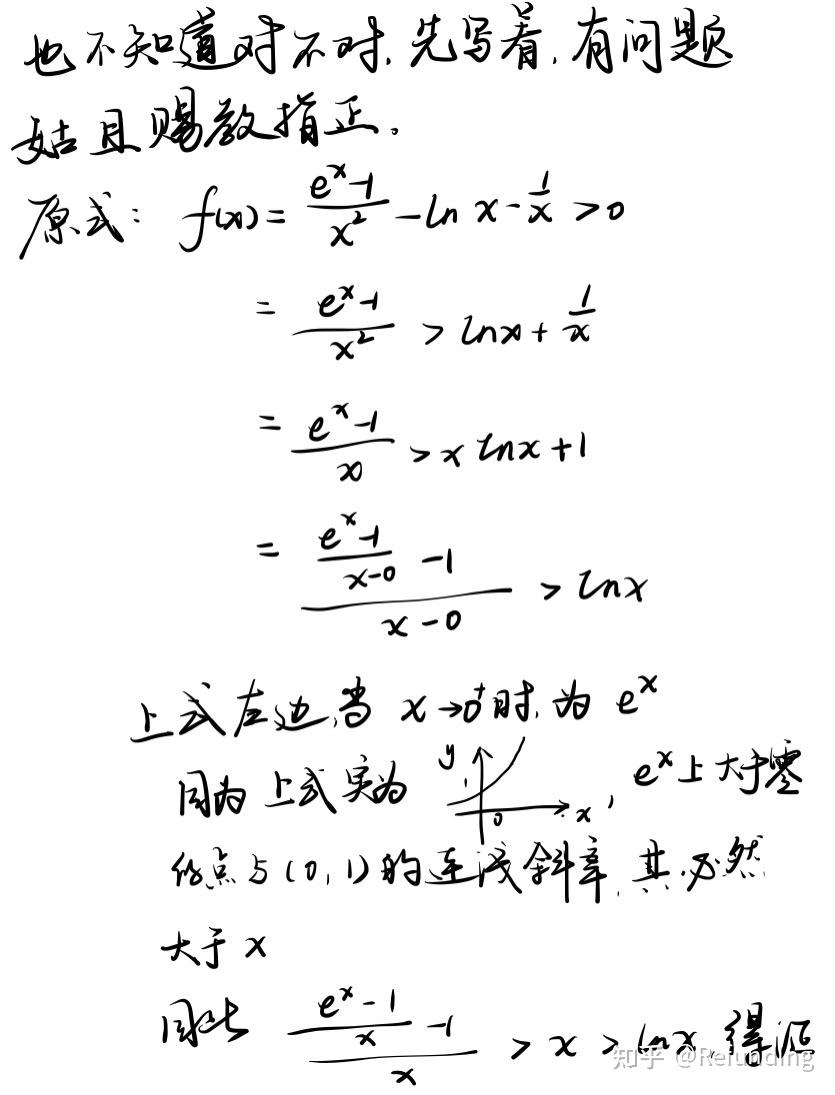 也不知道对不对,先写着,有问题
姑且赐教指正。
原式: f(x) = (e^x-1)/x^2 - ln x - 1/x > 0
= (e^x-1)/x^2 > lnx + 1/x
= (e^x-1)/x > x lnx + 1
= ((e^x-1)/(x-0) - 1)/(x-0) > lnx
上式左边,当 x→0^+时,为 e^x
因为上式实为 y 1 0 x , e^x上大于零
的点与(0,1)的连线斜率,其必然
大于 x
因此 ((e^x-1)/x - 1)/x > x > lnx,得证
知乎 @Refunding